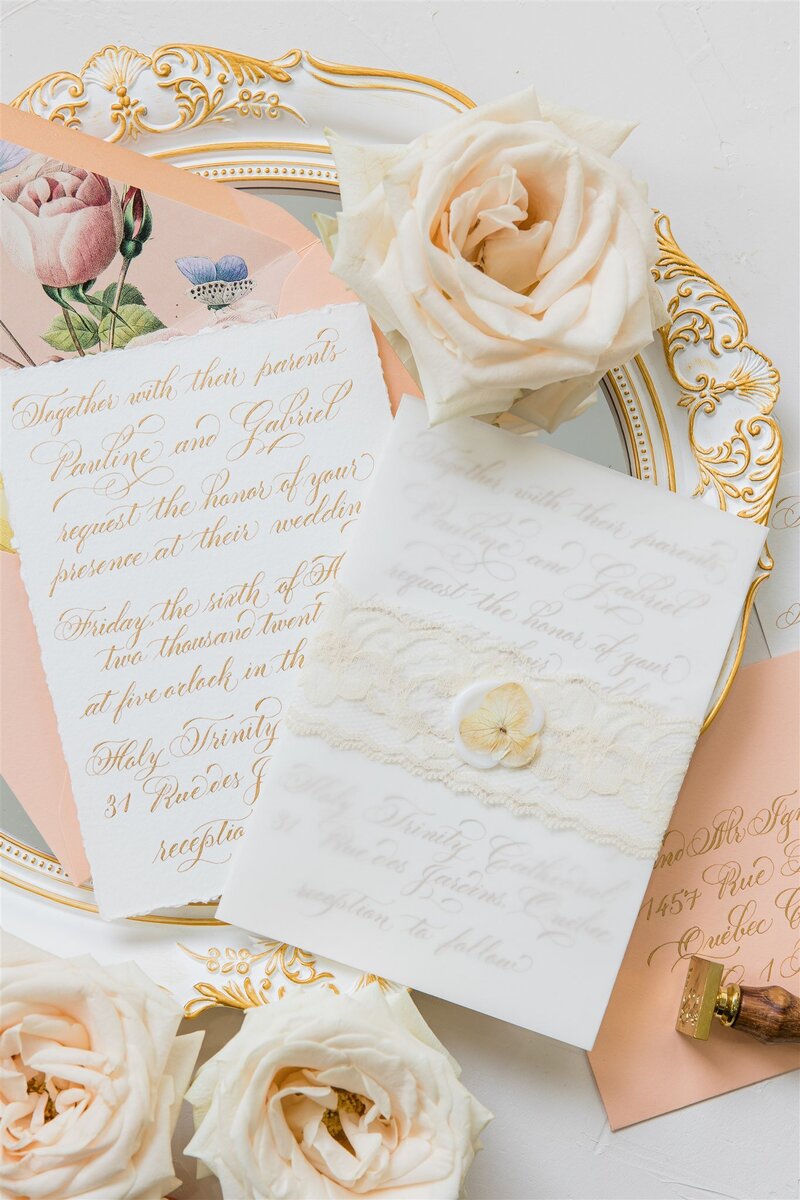 Together with their parents
Pauline and Gabriel
request the honor of your
presence at their weddin
Friday, the sixth of
two thousand twent
at five o'clock in th
Holy Trinity
31 Rue des J
reception
Together with their parents
Pauline and Gabriel
request the honor of your
at their wedding
Holy Trinity Cathedral
31 Rue des Jardins, Quebec
reception to follow
nd Mr Ign
1457 Rue
Québec C